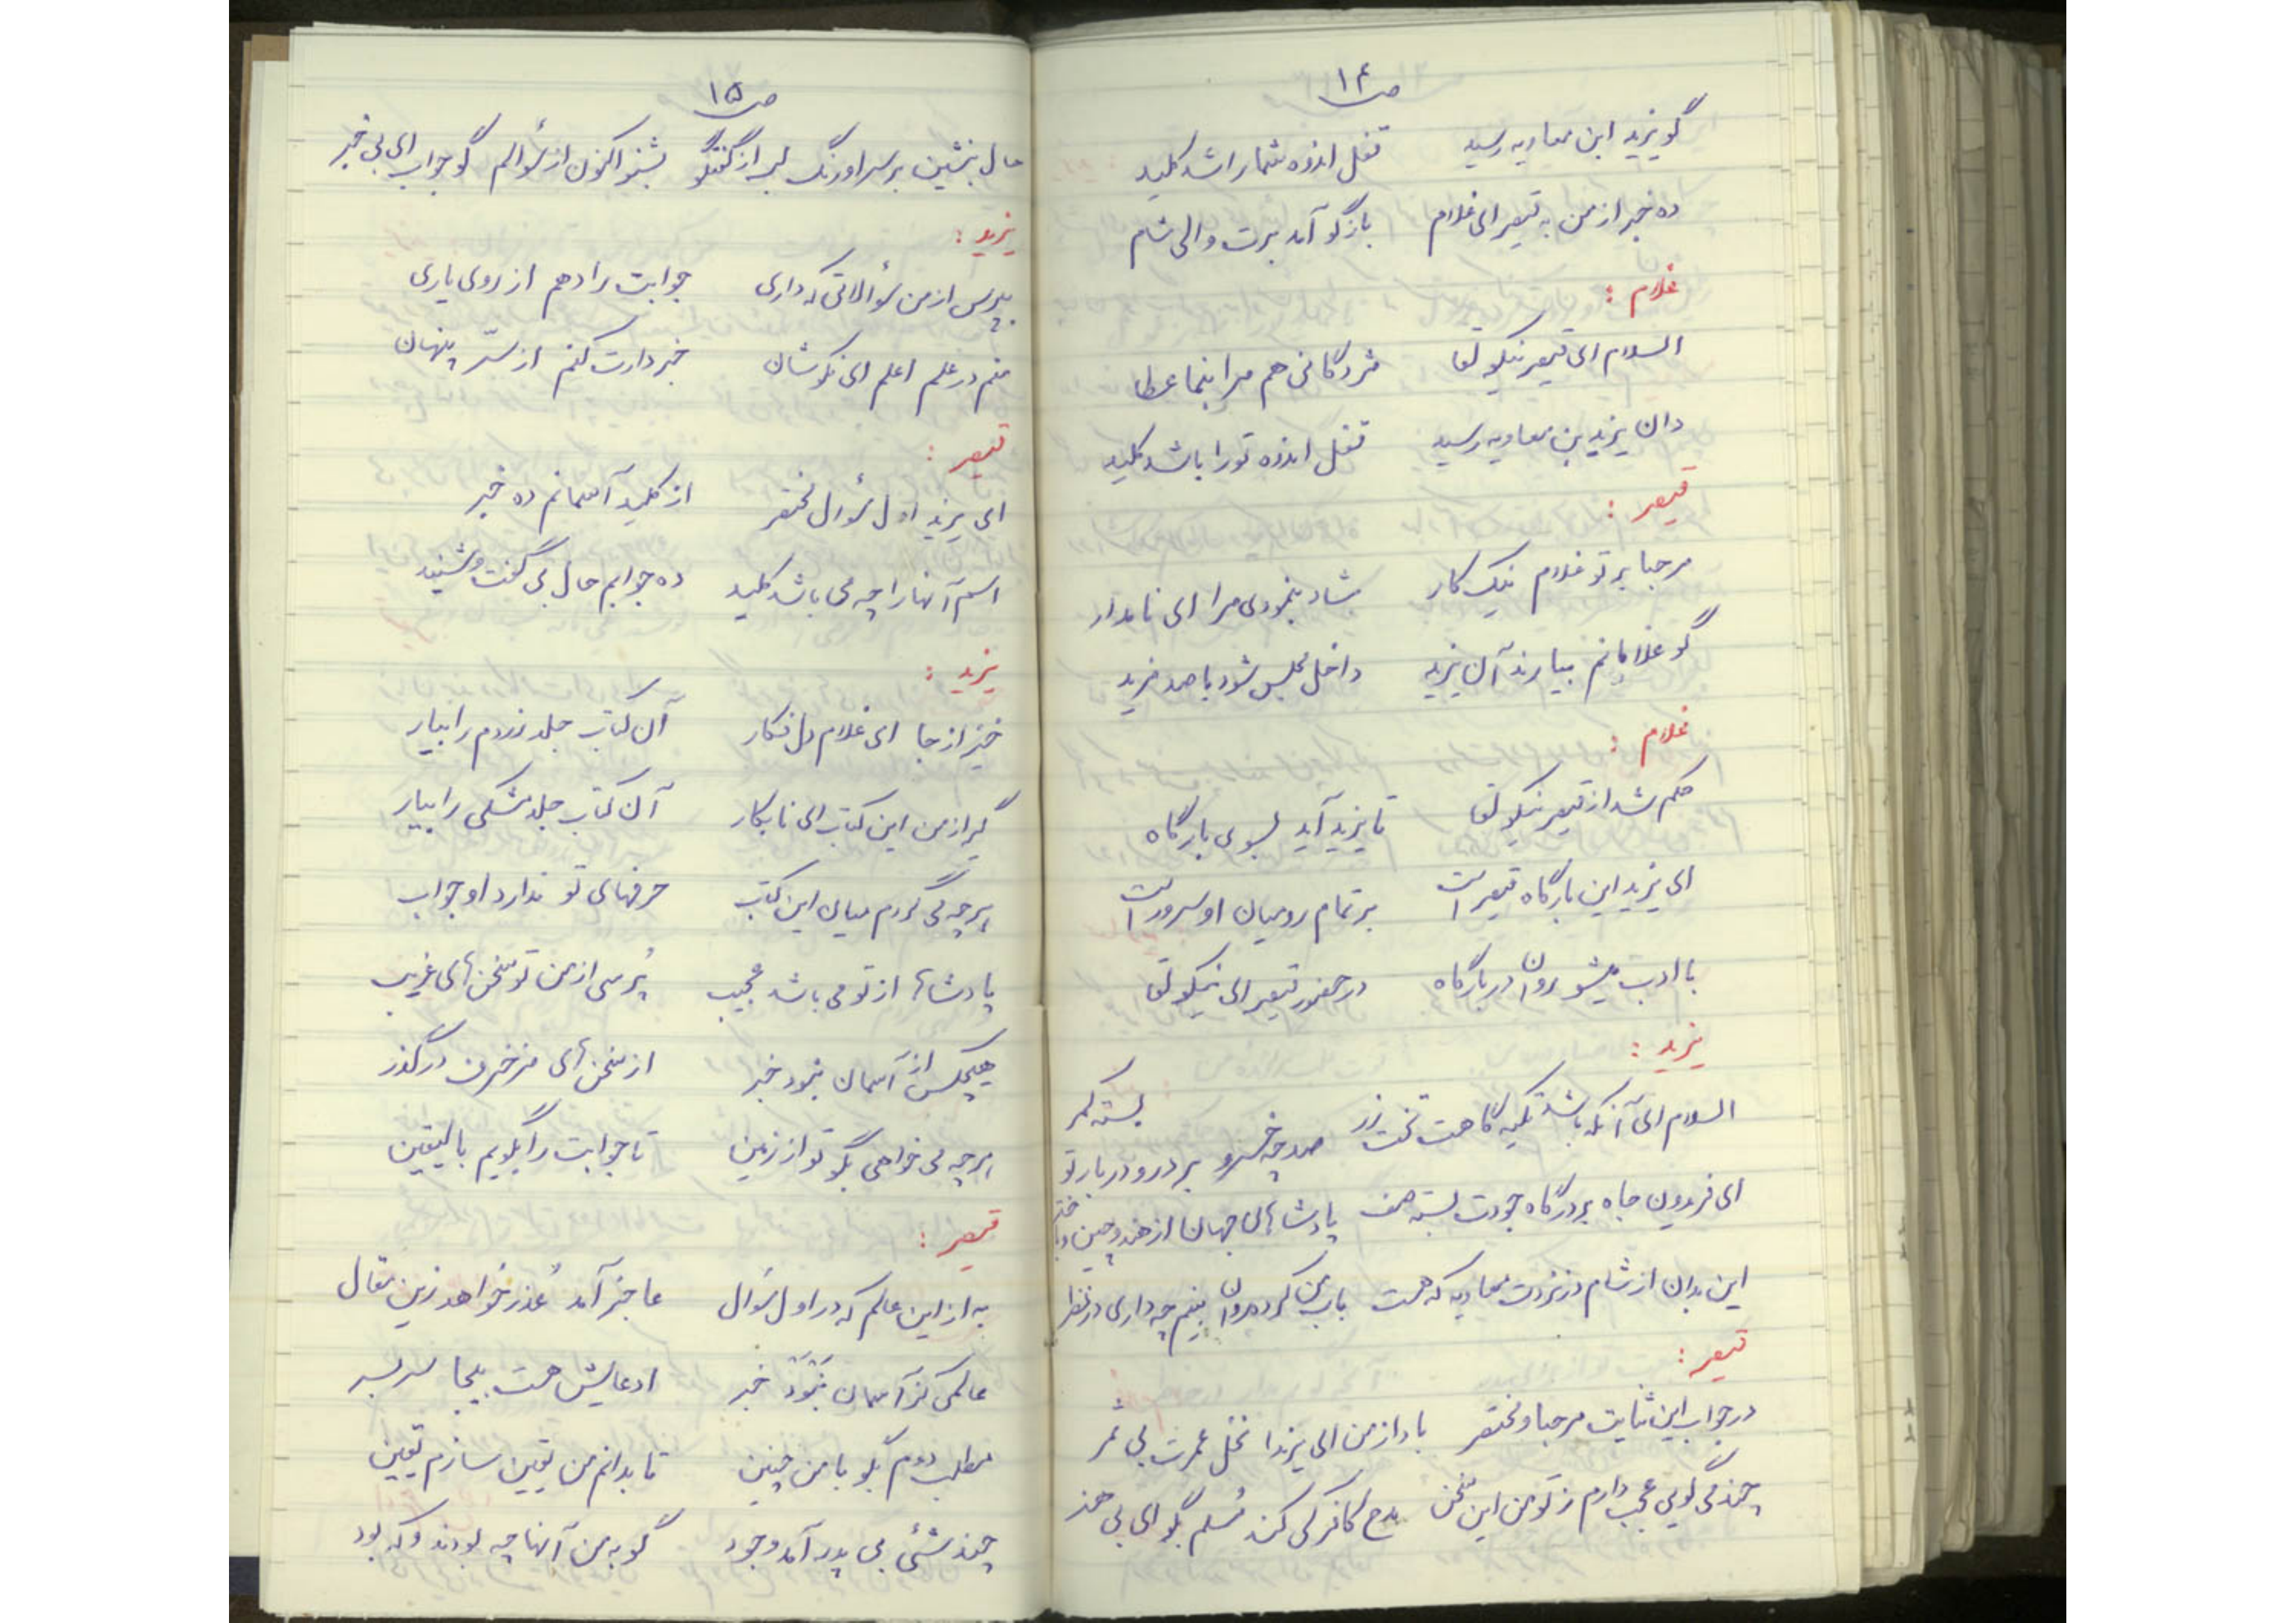 ص ۱۴
گو یزید ابن معاویه رسید    قفل اندوه شما را شد کلید
ده خبر از من به قیصر ای غلام    بازگو آمد برت والی شام
غلام :
السلام ای قیصر نیکو لقا    مژدگانی هم مرا بنما عطا
دان یزید بن معاویه رسید    قفل اندوه تو را باشد کلید
قیصر :
مرحبا بر تو غلام نیک کار    شاد بنمودی مرا ای نامدار
گو غلامانم بیارند آن یزید    داخل مجلس شود با صد مزید
غلام :
حکم شد از قیصر نیکو لقا    تا یزید آید بسوی بارگاه
ای یزید این بارگاه قیصر است    بر تمام رومیان او سرور است
با ادب میشو روان در بارگاه    در حضور قیصر ای نیکو لقا
یزید :
السلام ای آنکه باشد تکیه گاهت تخت زر    صد چو خسرو بر در و دربار تو بسته کمر
ای فریدون جاه بر درگاه جودت بسته صف    پادشاهان جهان از هند و چین و باختر
این بدان از شام در نزدت معاویه که هست    باب من کرده روان بینم چه داری در نظر
قیصر :
در جواب این ثنایت مرحبا و مختصر    باد از من ای یزیدا نخل عمرت بی ثمر
چند می گویی عجب دارم ز تو من این سخن    مدح کافر کی کند مُسلم بگو ای بی هنر
ص ۱۵
حال بنشین بر سر اورنگ لب از گفتگو    بشنو اکنون از سؤالم گو جواب ای بی خبر
یزید :
بپرس از من سؤالاتی که داری    جوابت را دهم از روی یاری
منم در علم اعلم ای نکو شان    خبردارت کنم از سرّ پنهان
قیصر :
ای یزید اول سؤال مختصر    از کلید آسمانم ده خبر
اسم آنها را چه می باشد کلید    ده جوابم حال بی گفت و شنید
یزید :
خیز از جا ای غلام دل فکار    آن کتاب جلد زردم را بیار
گیر از من این کتاب ای نابکار    آن کتاب جلد مشکی را بیار
هرچه می گردم میان این کتب    حرفهای تو ندارد او جواب
پادشاها از تو می باشد عجیب    پُرسی از من تو سخن های غریب
هیچکس از آسمان ننمود خبر    از سخن های مزخرف درگذر
هرچه می خواهی بگو تو از زمین    تا جوابت را بگویم بالیقین
قیصر :
به از این عالم که در اول سؤال    عاجز آمد عُذر خواهد زین مقال
عالمی کز آسمان نَبْوَد خبر    ادعایش هست بیجا سر بسر
مطلب دوم بگو با من چنین    تا بدانم من یقین سازم یقین
چند شئی بی پدر آمد وجود    گو به من آنها چه بودند و که بود